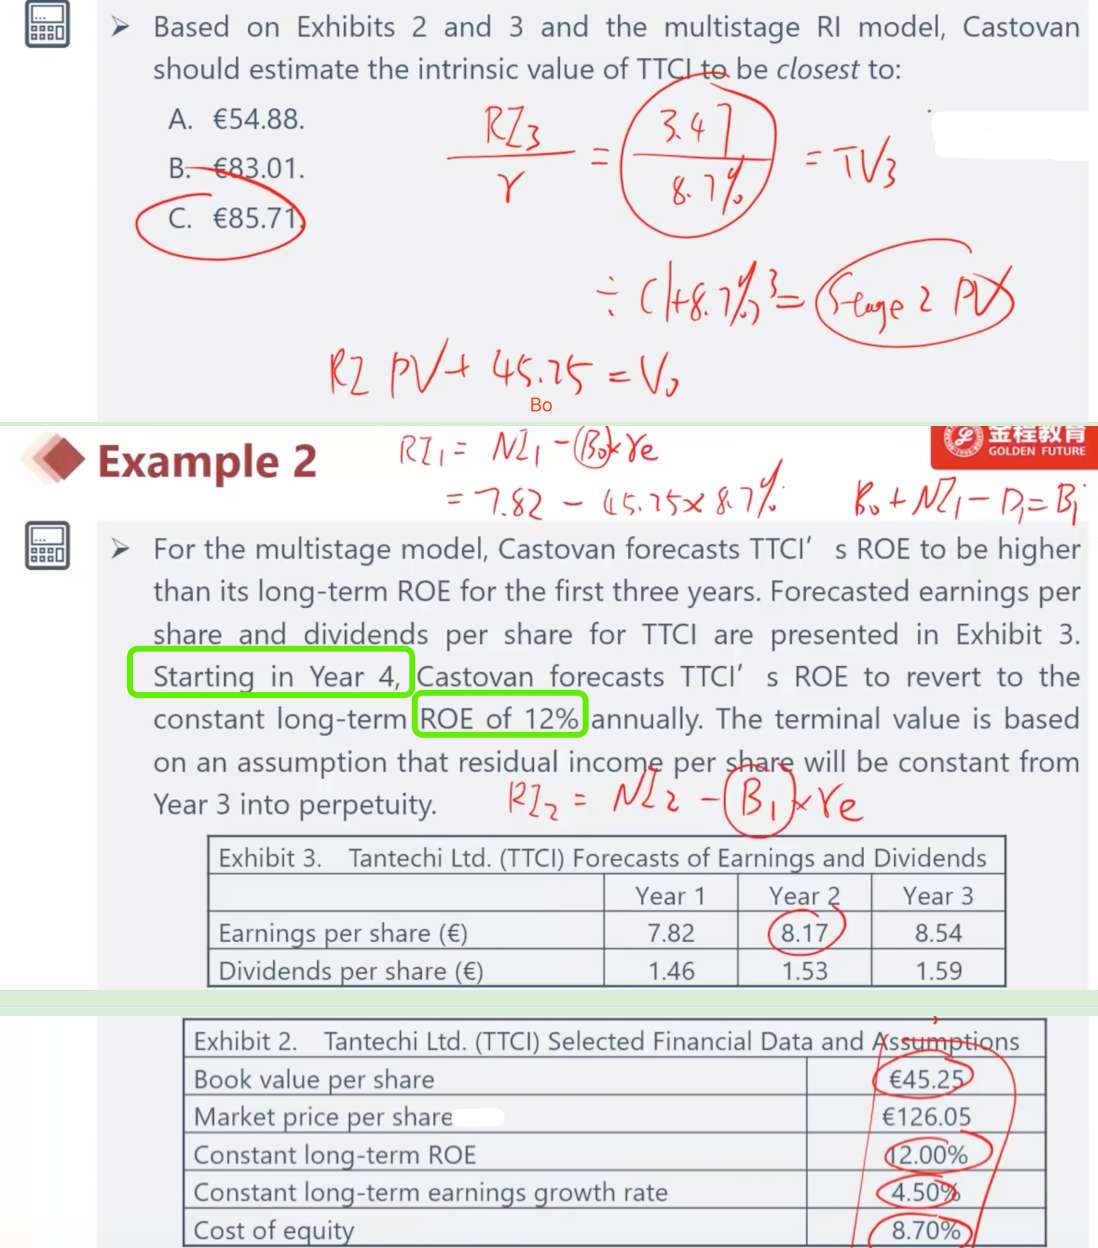 ➤ Based on Exhibits 2 and 3 and the multistage RI model, Castovan
should estimate the intrinsic value of TTCI to be closest to:
A. €54.88.
B. €83.01.
C. €85.71.
RI3 / r = 3.47 / 8.7% = TV3
÷ (1+8.7%)^3 = Stage 2 PV
RI PV + 45.25 = V0
Bo
Example 2
RI1 = NI1 - (B0) × re
= 7.82 - 45.25 × 8.7%
B0 + NI1 - D1 = B1
金程教育
GOLDEN FUTURE
➤ For the multistage model, Castovan forecasts TTCI' s ROE to be higher
than its long-term ROE for the first three years. Forecasted earnings per
share and dividends per share for TTCI are presented in Exhibit 3.
Starting in Year 4, Castovan forecasts TTCI' s ROE to revert to the
constant long-term ROE of 12% annually. The terminal value is based
on an assumption that residual income per share will be constant from
Year 3 into perpetuity.
RI2 = NI2 - (B1) × re
Exhibit 3. Tantechi Ltd. (TTCI) Forecasts of Earnings and Dividends
Year 1 Year 2 Year 3
Earnings per share (€) 7.82 8.17 8.54
Dividends per share (€) 1.46 1.53 1.59
Exhibit 2. Tantechi Ltd. (TTCI) Selected Financial Data and Assumptions
Book value per share €45.25
Market price per share €126.05
Constant long-term ROE 12.00%
Constant long-term earnings growth rate 4.50%
Cost of equity 8.70%